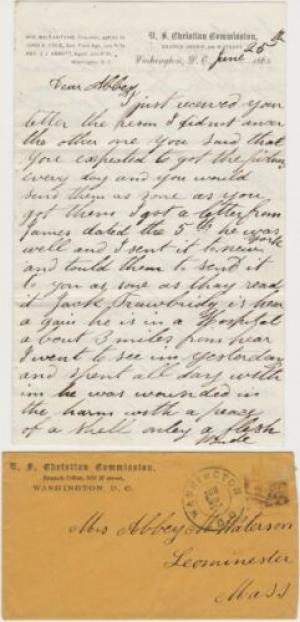 U. S. Christian Commission,
Washington, D. C. June 25th 186
Dear Abbey
I just received your
letter the reson I did not answer
the other one you said that
you expected to got the pictures
every day and you would
send them as sone as you
got them I got a letter from
James dated the 5th he was
well and I sent it to new york
and tould them to send it
to you as sone as thay read
it Jack Trawbridg is hear
a gain he is in a Hospital
about 3 miles from hear
I went to see im yesterday
and spent all day with
im he was wounded in
the harm with a peace
of a shell onley a flesh
U. S. Christian Commission,
Branch Office, H street,
WASHINGTON, D. C.
WASHINGTON D.C.
Mrs Abbey Waterson
Leominester
Mass